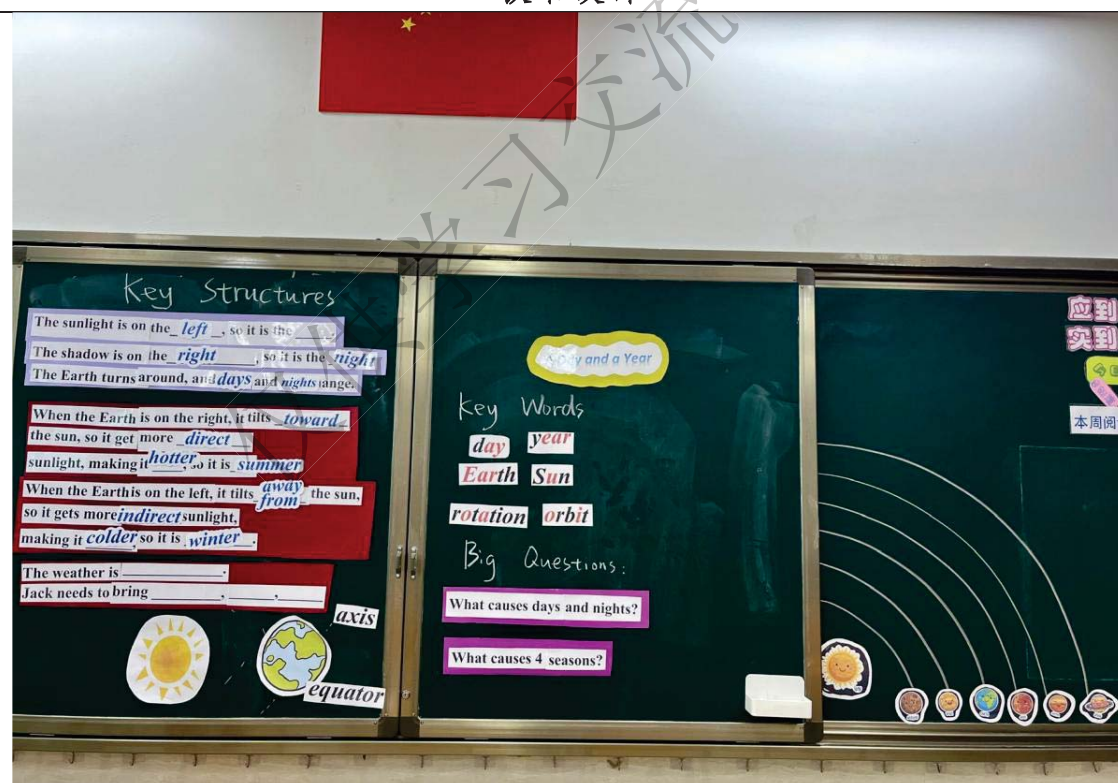 Key Structures
The sunlight is on the_ left _, so it is the ____.
The shadow is on the_ right ____, so it is the night
The Earth turns around, and days and nights
When the Earth is on the right, it tilts _toward_
the sun, so it get more _direct_
sunlight, making it hotter, so it is _summer_
When the Earth is on the left, it tilts_ away from _ the sun,
so it gets more indirect sunlight,
making it colder, so it is _winter_.
The weather is __________.
Jack needs to bring ________, ______, ______
axis
equator
A Day and a Year
Key Words
day year
Earth Sun
rotation orbit
Big Questions:
What causes days and nights?
What causes 4 seasons?
应到
实到
本周阅
学习交流